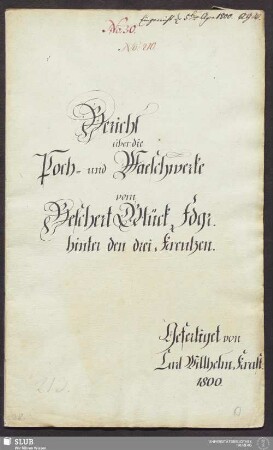 No: 30.
No: 210.
Bericht
über die
Poch- und Waeschwerke
vom
Beschert Glück Fdgr.
hinter den drei Kreutzen.
Gefertiget von
Carl Willhelm Kraft
1800.
213.
SLUB
Wir führen Wissen.